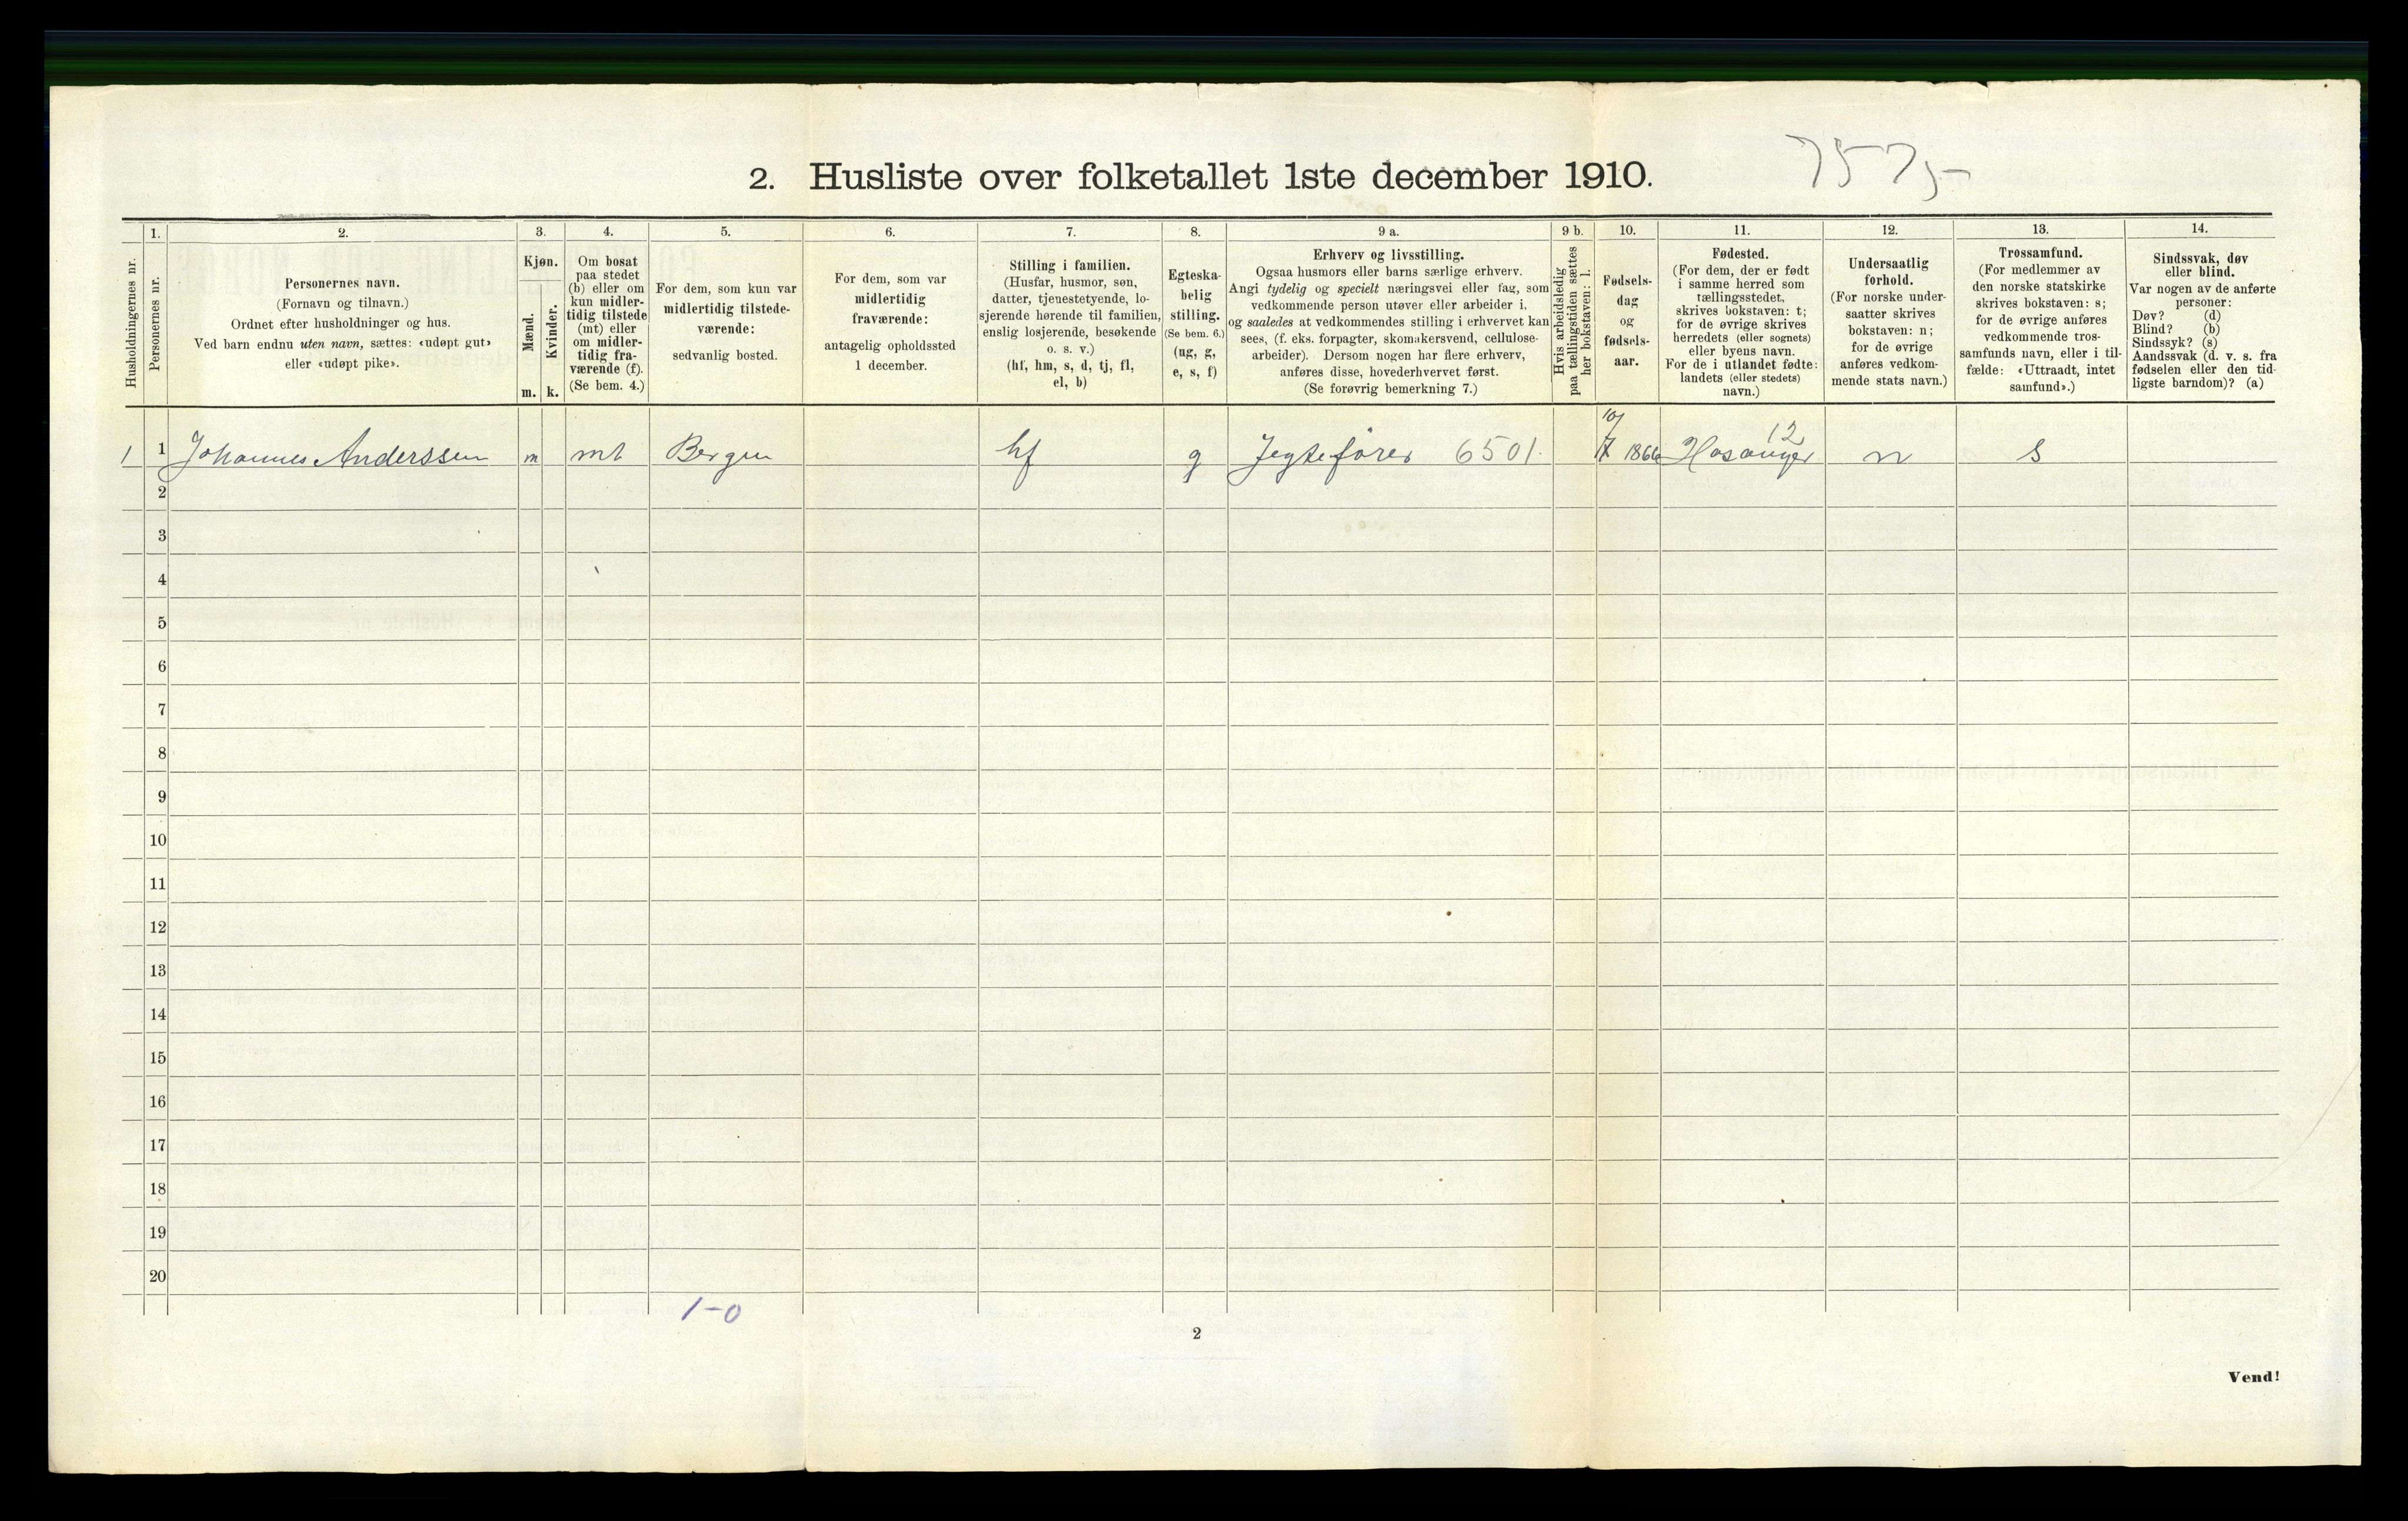 2. Husliste over folketallet 1ste december 1910.
Husholdningernes nr.
1.
Personernes nr.
2.
Personernes navn.
(Fornavn og tilnavn.)
Ordnet efter husholdninger og hus.
Ved barn endnu uten navn, sættes: «udøpt gut»
eller «udøpt pike».
3.
Kjøn.
Mænd.
Kvinder.
m. k.
4.
Om bosat
paa stedet
(b) eller om
kun midler-
tidig tilstede
(mt) eller
om midler-
tidig fra-
værende (f).
(Se bem. 4.)
5.
For dem, som kun var
midlertidig tilstede-
værende:
sedvanlig bosted.
6.
For dem, som var
midlertidig
fraværende:
antagelig opholdssted
1 december.
7.
Stilling i familien.
(Husfar, husmor, søn,
datter, tjenestetyende, lo-
sjerende hørende til familien,
enslig losjerende, besøkende
o. s. v.)
(hf, hm, s, d, tj, fl,
el, b)
8.
Egteska-
belig
stilling.
(Se bem. 6.)
(ug, g,
e, s, f)
9 a.
Erhverv og livsstilling.
Ogsaa husmors eller barns særlige erhverv.
Angi tydelig og specielt næringsvei eller fag, som
vedkommende person utøver eller arbeider i,
og saaledes at vedkommendes stilling i erhvervet kan
sees, (f. eks. forpagter, skomakersvend, cellulose-
arbeider). Dersom nogen har flere erhverv,
anføres disse, hovederhvervet først.
(Se forøvrig bemerkning 7.)
9 b.
Hvis arbeidsledig
paa tællingstiden sættes
her bokstaven: l.
10.
Fødsels-
dag
og
fødsels-
aar.
11.
Fødested.
(For dem, der er født
i samme herred som
tællingsstedet,
skrives bokstaven: t;
for de øvrige skrives
herredets (eller sognets)
eller byens navn.
For de i utlandet fødte:
landets (eller stedets)
navn.)
12.
Undersaatlig
forhold.
(For norske under-
saatter skrives
bokstaven: n;
for de øvrige
anføres vedkom-
mende stats navn.)
13.
Trossamfund.
(For medlemmer av
den norske statskirke
skrives bokstaven: s;
for de øvrige anføres
vedkommende tros-
samfunds navn, eller i til-
fælde: «Uttraadt, intet
samfund».)
14.
Sindssvak, døv
eller blind.
Var nogen av de anførte
personer:
Døv? (d)
Blind? (b)
Sindssyk? (s)
Aandssvak (d. v. s. fra
fødselen eller den tid-
ligste barndom)? (a)
1 1 Johannes Anderssen m mt Bergen hf g Jegtefører 6501. 10/7 1866 Hosanger 12 n s
2
3
4
5
6
7
8
9
10
11
12
13
14
15
16
17
18
19
20
1-0
2
Vend!